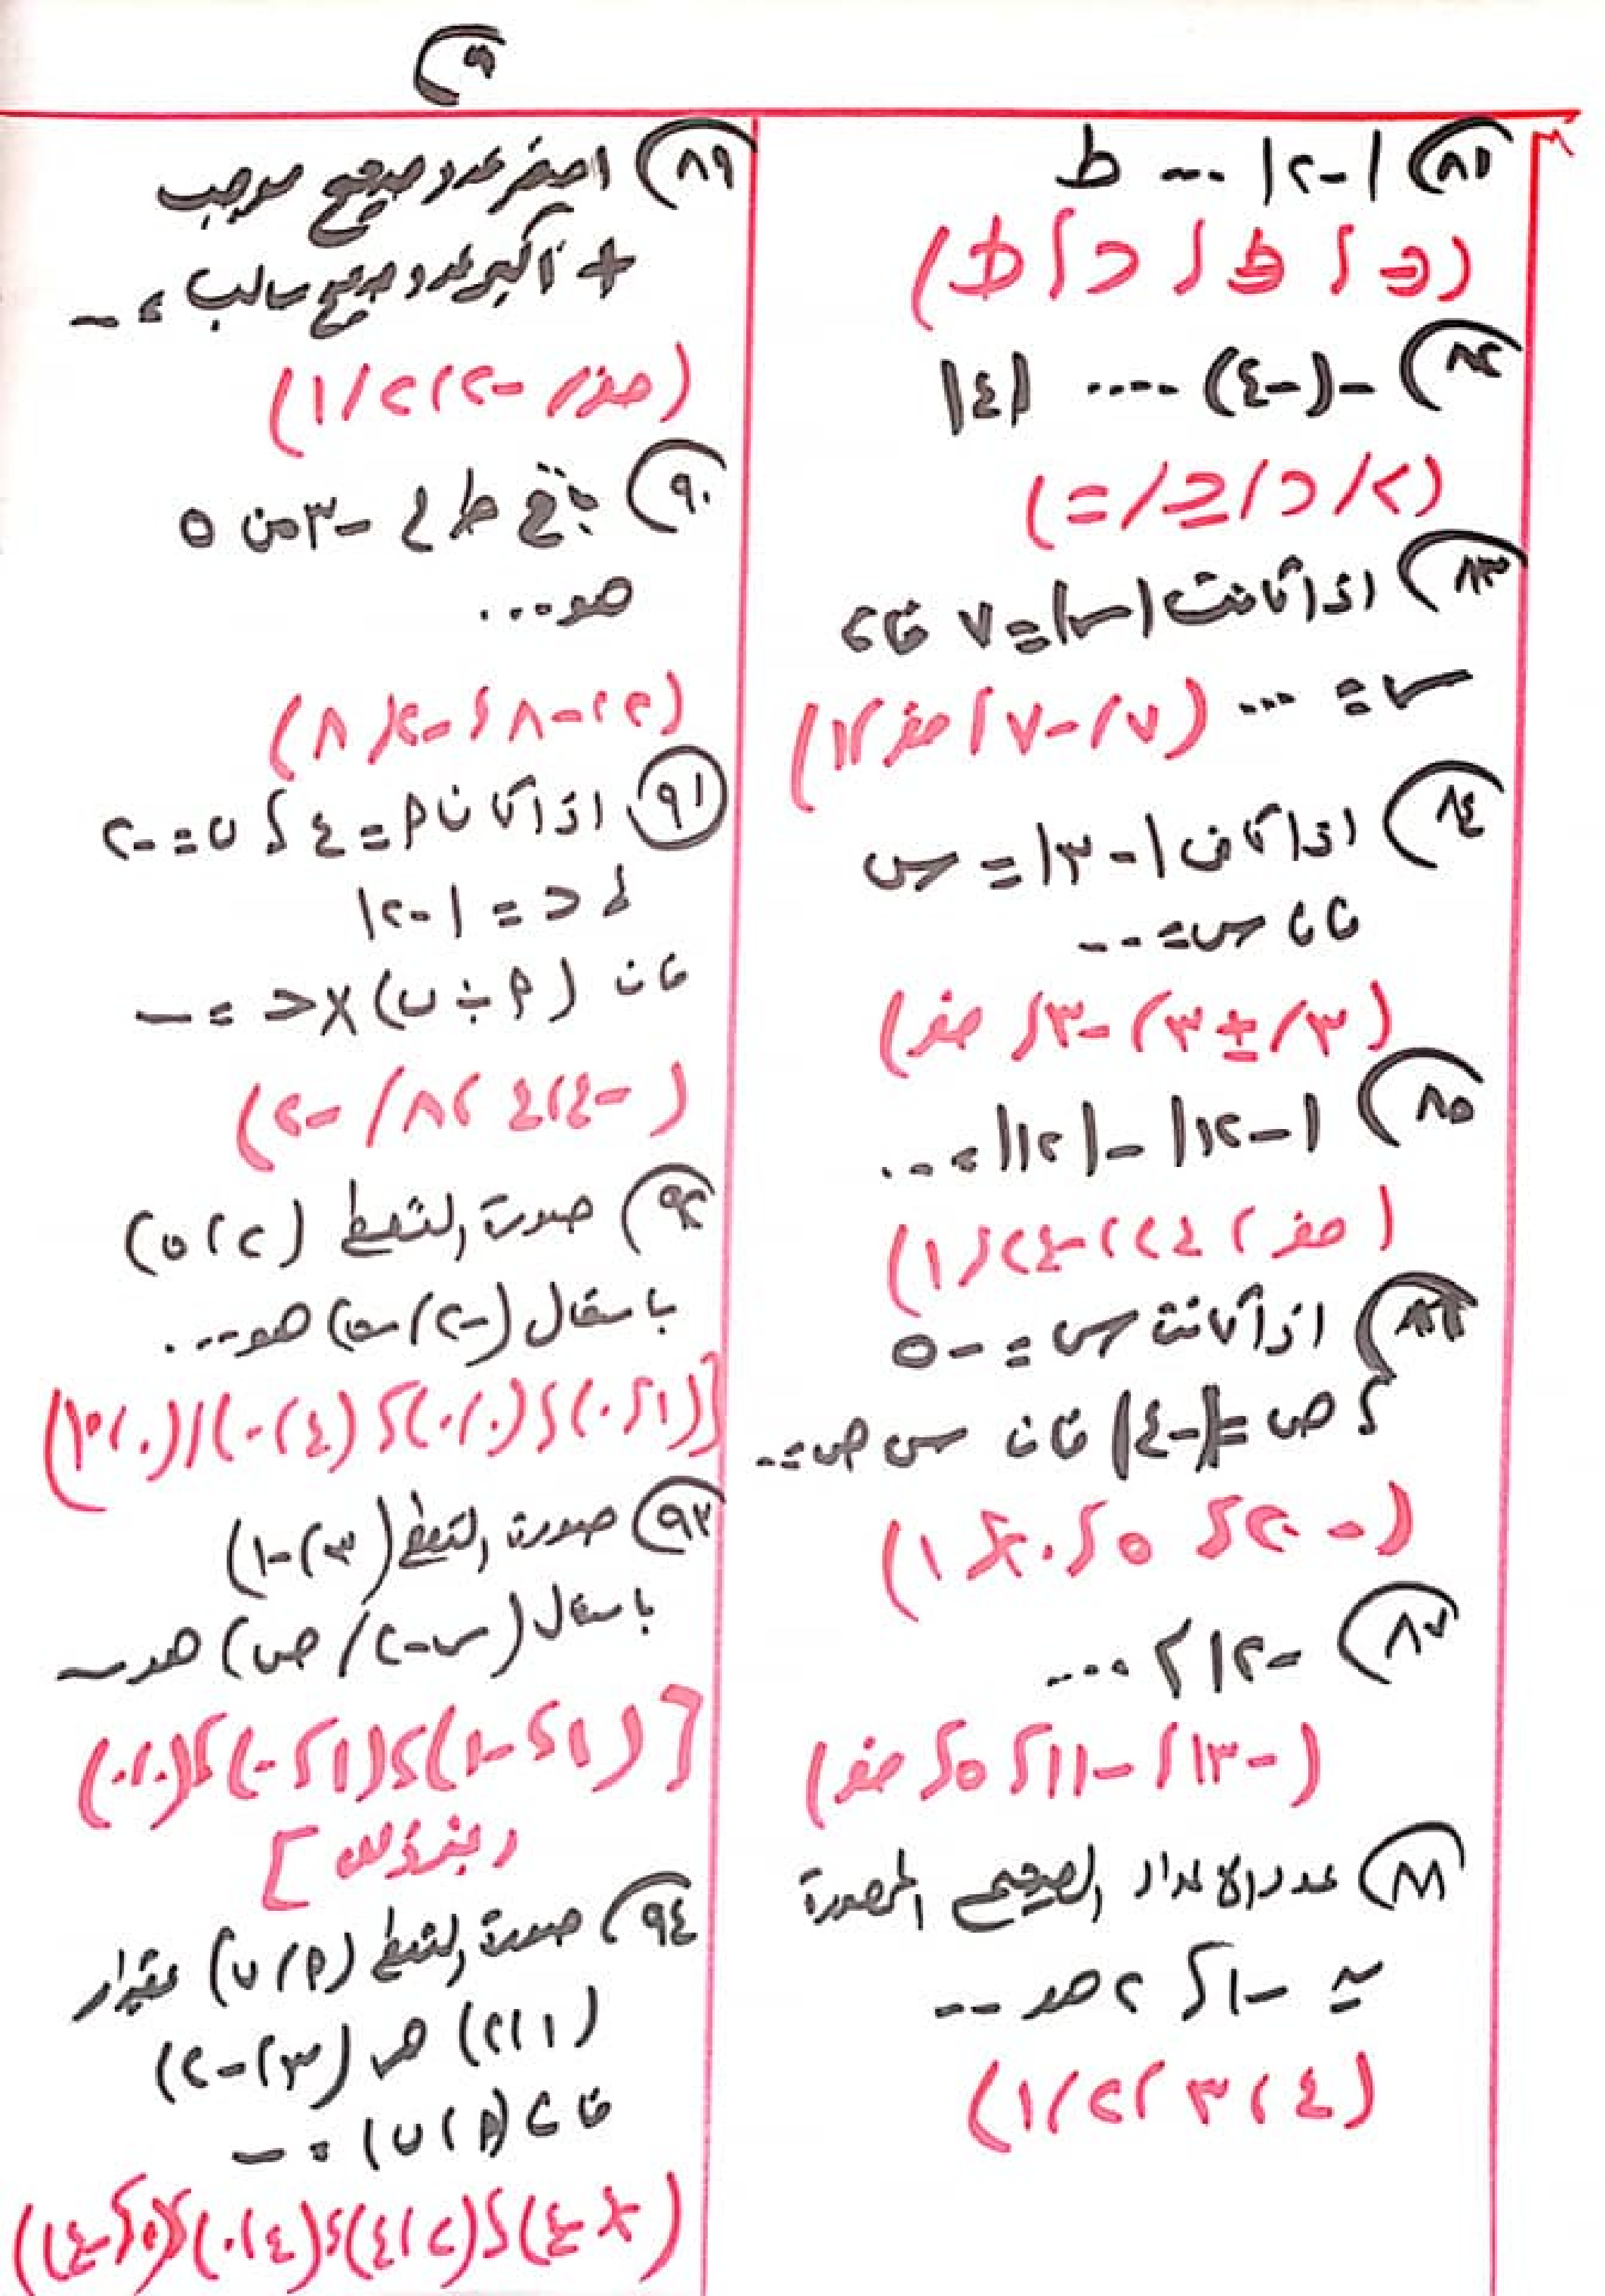 ٩
٨١) |-٢| ... ط
(∈ ، ∉ ، ⊂ ، ⊄)
٨٢) -(-٤) .... |٤|
(> / < / ≥ / =)
٨٣) اذا كانت |س| = ٧ فان
س = ... (٧ / -٧ ،
٨٤) اذا كان |-٣| = س
فان س = ...
(٣ / ±٣ / -٣ ، صفر)
٨٥) |-١٢| - |١٢| = ...
(صفر ، ٢٤ ، -٢٤ ، ١)
٨٦) اذا كانت س = -٥
، ص = |-٤| فان س ص = ..
(-٢٠ ، ٥ ، ٢٠ ، ١)
٨٧) -١٢ > ...
(-١٣ ، -١١ ، ٥ ، صفر)
٨٨) عدد الاعداد الصحيحة المحصورة
بين -١ ، ٢ هو ...
(٤ ، ٣ ، ٢ / ١)
٨٩) اصغر عدد صحيح موجب
+ اكبر عدد صحيح سالب = ...
(صفر / -٢ ، ٢ / ١)
٩٠) ناتج طرح -٣ من ٥
هو ...
(٢ ، -٨ ، -٢ ، ٨)
٩١) اذا كان أ = ٤ ، ب = -٢
، ح = |-٢|
فان (أ ÷ ب) × ح = ...
(-٤ ، ٤ ، ٨ / -٢)
٩٢) صورة النقطة (٢ ، ٥)
بانتقال (-٢ / -٥) هو ...
[(١ ، ٠) ، (٠ ، ٠) ، (٤ ، ٠) / (٠ ، ٣)]
٩٣) صورة النقطة (٣ ، -١)
بانتقال (س-٢ / ص) هو ...
[(١ ، -١) ، (١ ، ٠) ، (٠ ، ٠)
]
٩٤) صورة النقطة (أ ، ب) بمقدار
(١ ، ٢) هى (٣ ، -٢)
فان (أ ، ب) = ...
(٢ ، -٤) ، (٢ ، ٤) ، (٤ ، ٠) ، (٠ ، -٤)